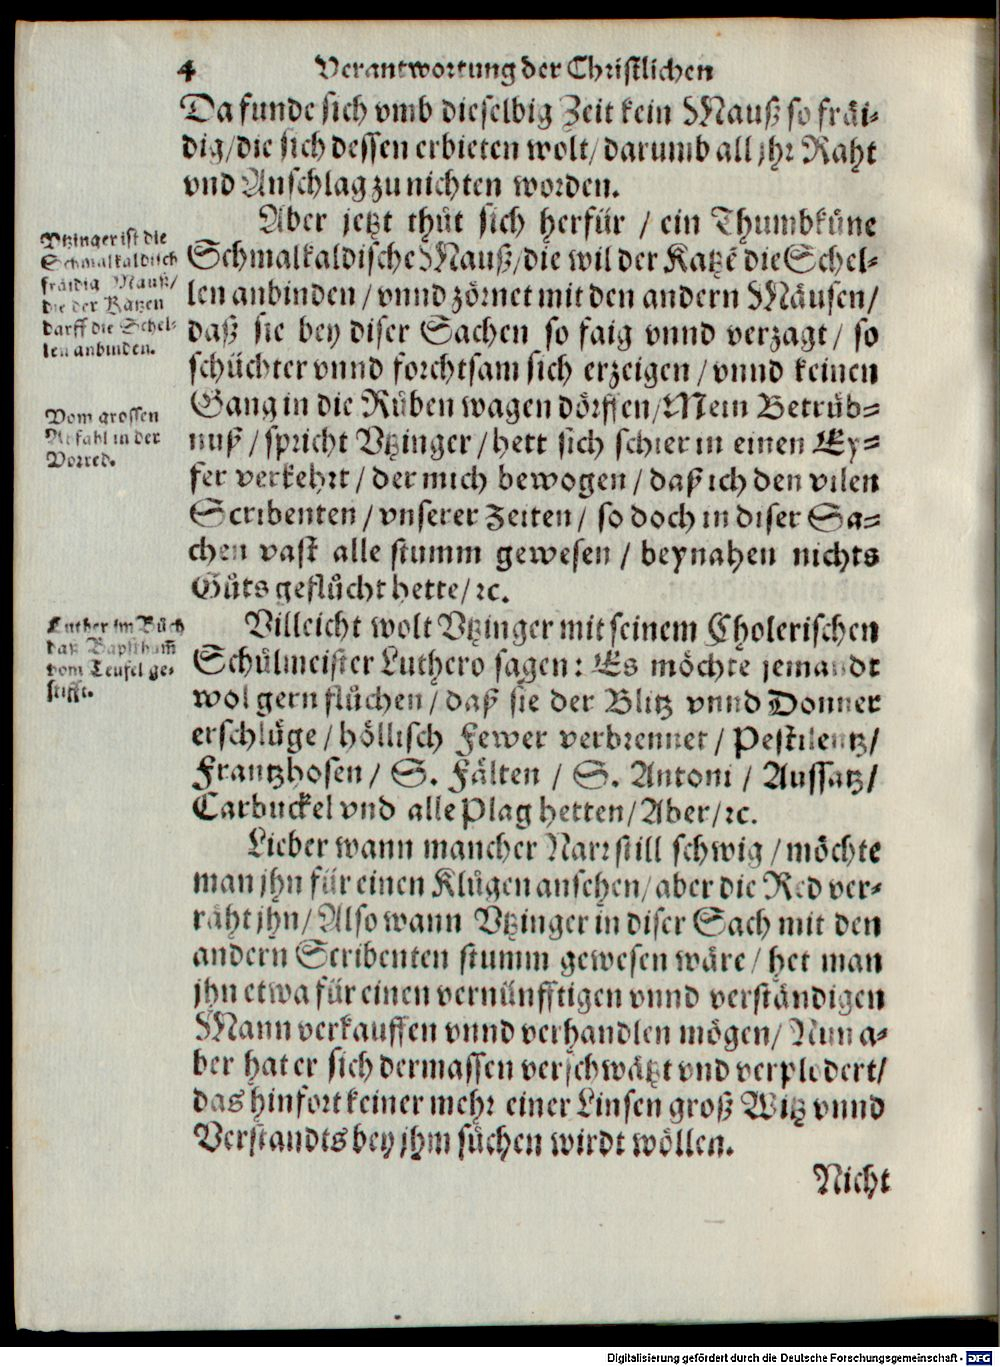 4 Verantwortung der Christlichen
Da funde sich vmb dieselbig Zeit kein Mauß so fräi-
dig/die sich dessen erbieten wolt/darumb all jhr Raht
vnd Anschlag zu nichten worden.
Aber jetzt thůt sich herfür / ein Thumbkůne
Schmalkaldische Mauß/die wil der Katzẽ die Schel-
len anbinden/vnnd zörnet mit den andern Mäusen/
daß sie bey diser Sachen so faig vnnd verzagt/ so
schüchter vnnd forchtsam sich erzeigen/vnnd keinen
Gang in die Růben wagen dörffen/Mein Betrüb-
nuß/spricht Vtzinger/hett sich schier in einen Ey-
fer verkehrt/der mich bewogen/daß ich den vilen
Scribenten/vnserer Zeiten/ so doch in diser Sa-
chen vast alle stumm gewesen / beynahen nichts
Gůts geflůcht hette/ꝛc.
Villeicht wolt Vtzinger mit seinem Cholerischen
Schůlmeister Luthero sagen: Es möchte jemandt
wol gern flůchen/daß sie der Blitz vnnd Donner
erschlůge/höllisch Fewer verbrennet/Pestilentz/
Frantzhosen/ S. Fälten / S. Antoni / Aussatz/
Carbuckel vnd alle Plag hetten/Aber/ꝛc.
Lieber wann mancher Narr still schwig /möchte
man jhn für einen Klůgen ansehen/aber die Red ver-
räht jhn/Also wann Vtzinger in diser Sach mit den
andern Scribenten stumm gewesen wäre/het man
jhn etwa für einen vernünfftigen vnnd verständigen
Mann verkauffen vnnd verhandlen mögen/Nun a-
ber hat er sich dermassen verschwätzt vnd verpledert/
das hinfort keiner mehr einer Linsen groß Witz vnnd
Verstandts bey jhm sůchen wirdt wöllen.
Nicht
Vtzinger ist die
Schmalkaldisch
fräidig Mauß/
die der Katzen
darff die Schel-
len anbinden.
Vom grossen
Abfahl in der
Vorred.
Luther im Bůch
daß Bapsthum̃
vom Teufel ge-
stifft.
Digitalisierung gefördert durch die Deutsche Forschungsgemeinschaft - DFG